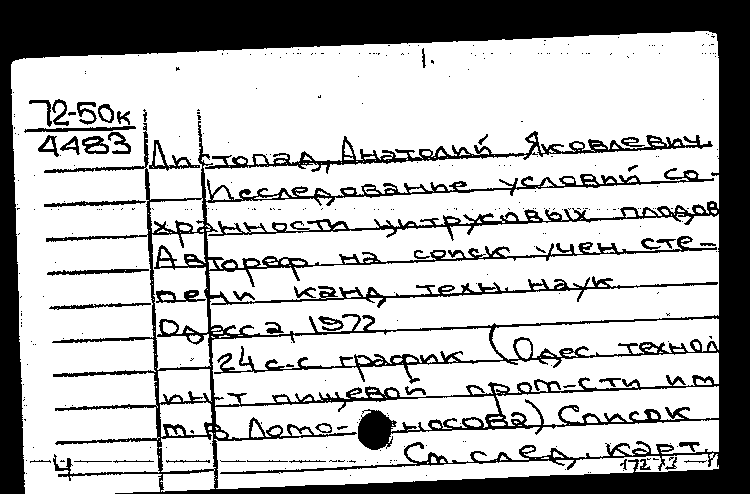 1.
72-50к
4483
Листопад, Анатолий Яковлевич.
Исследование условий со-
хранности цитрусовых плодов
Автореф. на соиск. учен. сте-
пени канд. техн. наук.
Одесса, 1972.
24 с. с график. (Одес. технол
ин-т пищевой пром-сти им
М. В. Ломоносова). Список
См. след. карт.
4